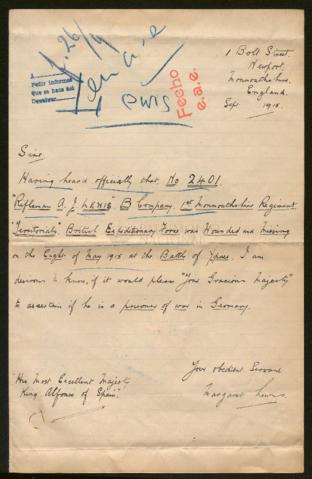 1 Bolt Street.
Newport,
Monmouthshire.
England.
Sept 1915.
Pedir informes
Que se hace del
Devolver
Fecho
e.a.e.
Lewis
Sire,
Having heard officially that No 2401
"Rifleman A. J. LEWIS" B Company. 1st Monmouthshire Regiment
"Territorials" British Expeditionary Force was Wounded and Missing
on the Eight of May 1915 at the Battle of Ypres. I am
desirous to know, if it would please "Your Gracious Majesty"
to ascertain if he is a prisoner of war in Germany.
Your obedient Servant
Margaret Lewis
"His Most Excellent Majesty
King Alfonso of Spain".